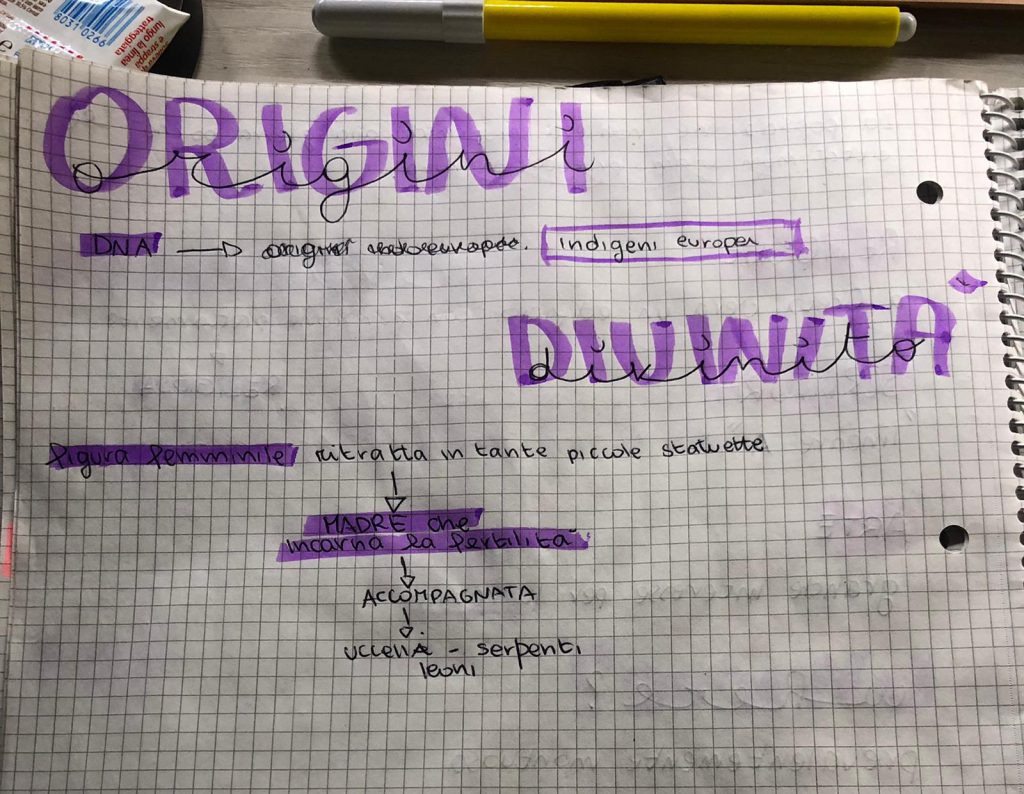 8031 0266
lungo la linea
tratteggiata
ORIGINI
origini
DNA → indigeni europei
DIVINITÀ
divinità
figura femminile ritratta in tante piccole statuette
MADRE che
incarna la fertilità
ACCOMPAGNATA
uccelli - serpenti
leoni